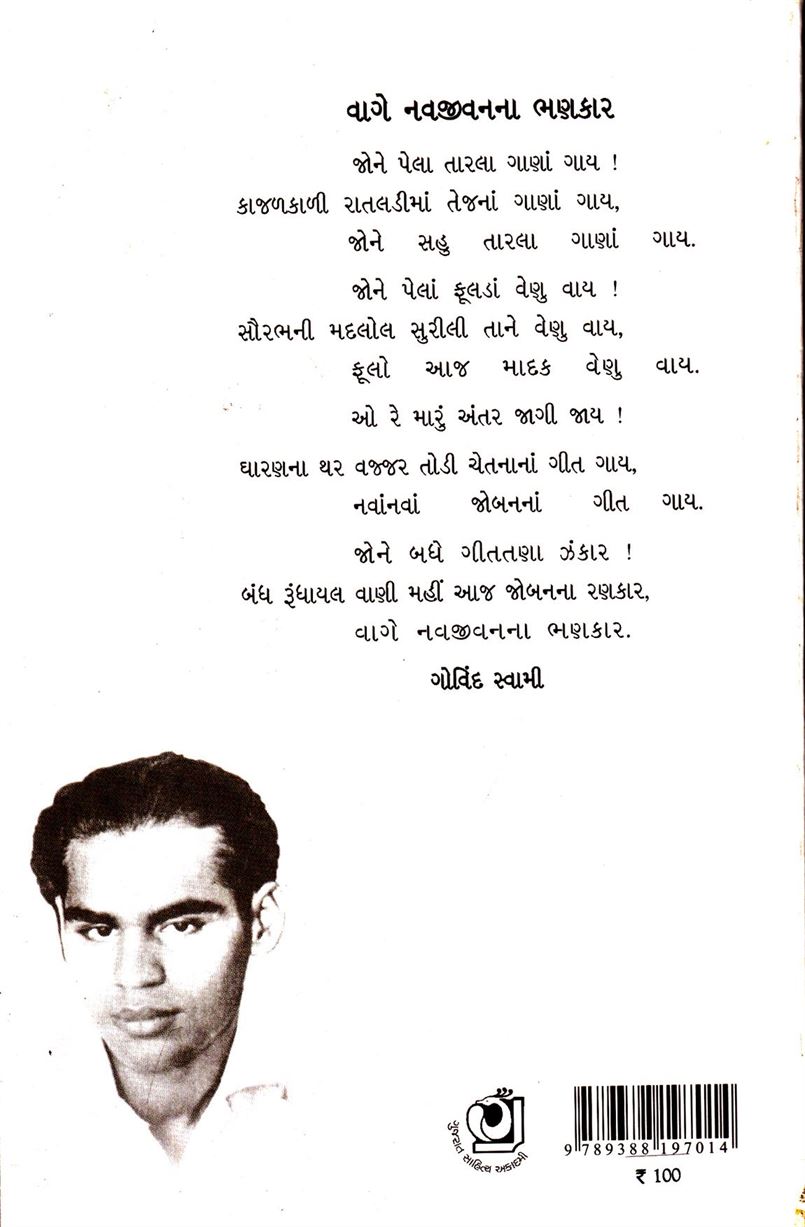 વાગે નવજીવનના ભણકાર
જોને પેલા તારલા ગાણાં ગાય !
કાજળકાળી રાતલડીમાં તેજનાં ગાણાં ગાય,
જોને સહુ તારલા ગાણાં ગાય.
જોને પેલાં ફૂલડાં વેણુ વાય !
સૌરભની મદલોલ સુરીલી તાને વેણુ વાય,
ફૂલો આજ માદક વેણુ વાય.
ઓ રે મારું અંતર જાગી જાય !
ઘારણના થર વજ્જર તોડી ચેતનાનાં ગીત ગાય,
નવાંનવાં જોબનનાં ગીત ગાય.
જોને બધે ગીતતણા ઝંકાર !
બંધ રૂંધાયલ વાણી મહીં આજ જોબનના રણકાર,
વાગે નવજીવનના ભણકાર.
ગોવિંદ સ્વામી
ગુજરાત સાહિત્ય અકાદમી
9 789388 197014
₹ 100